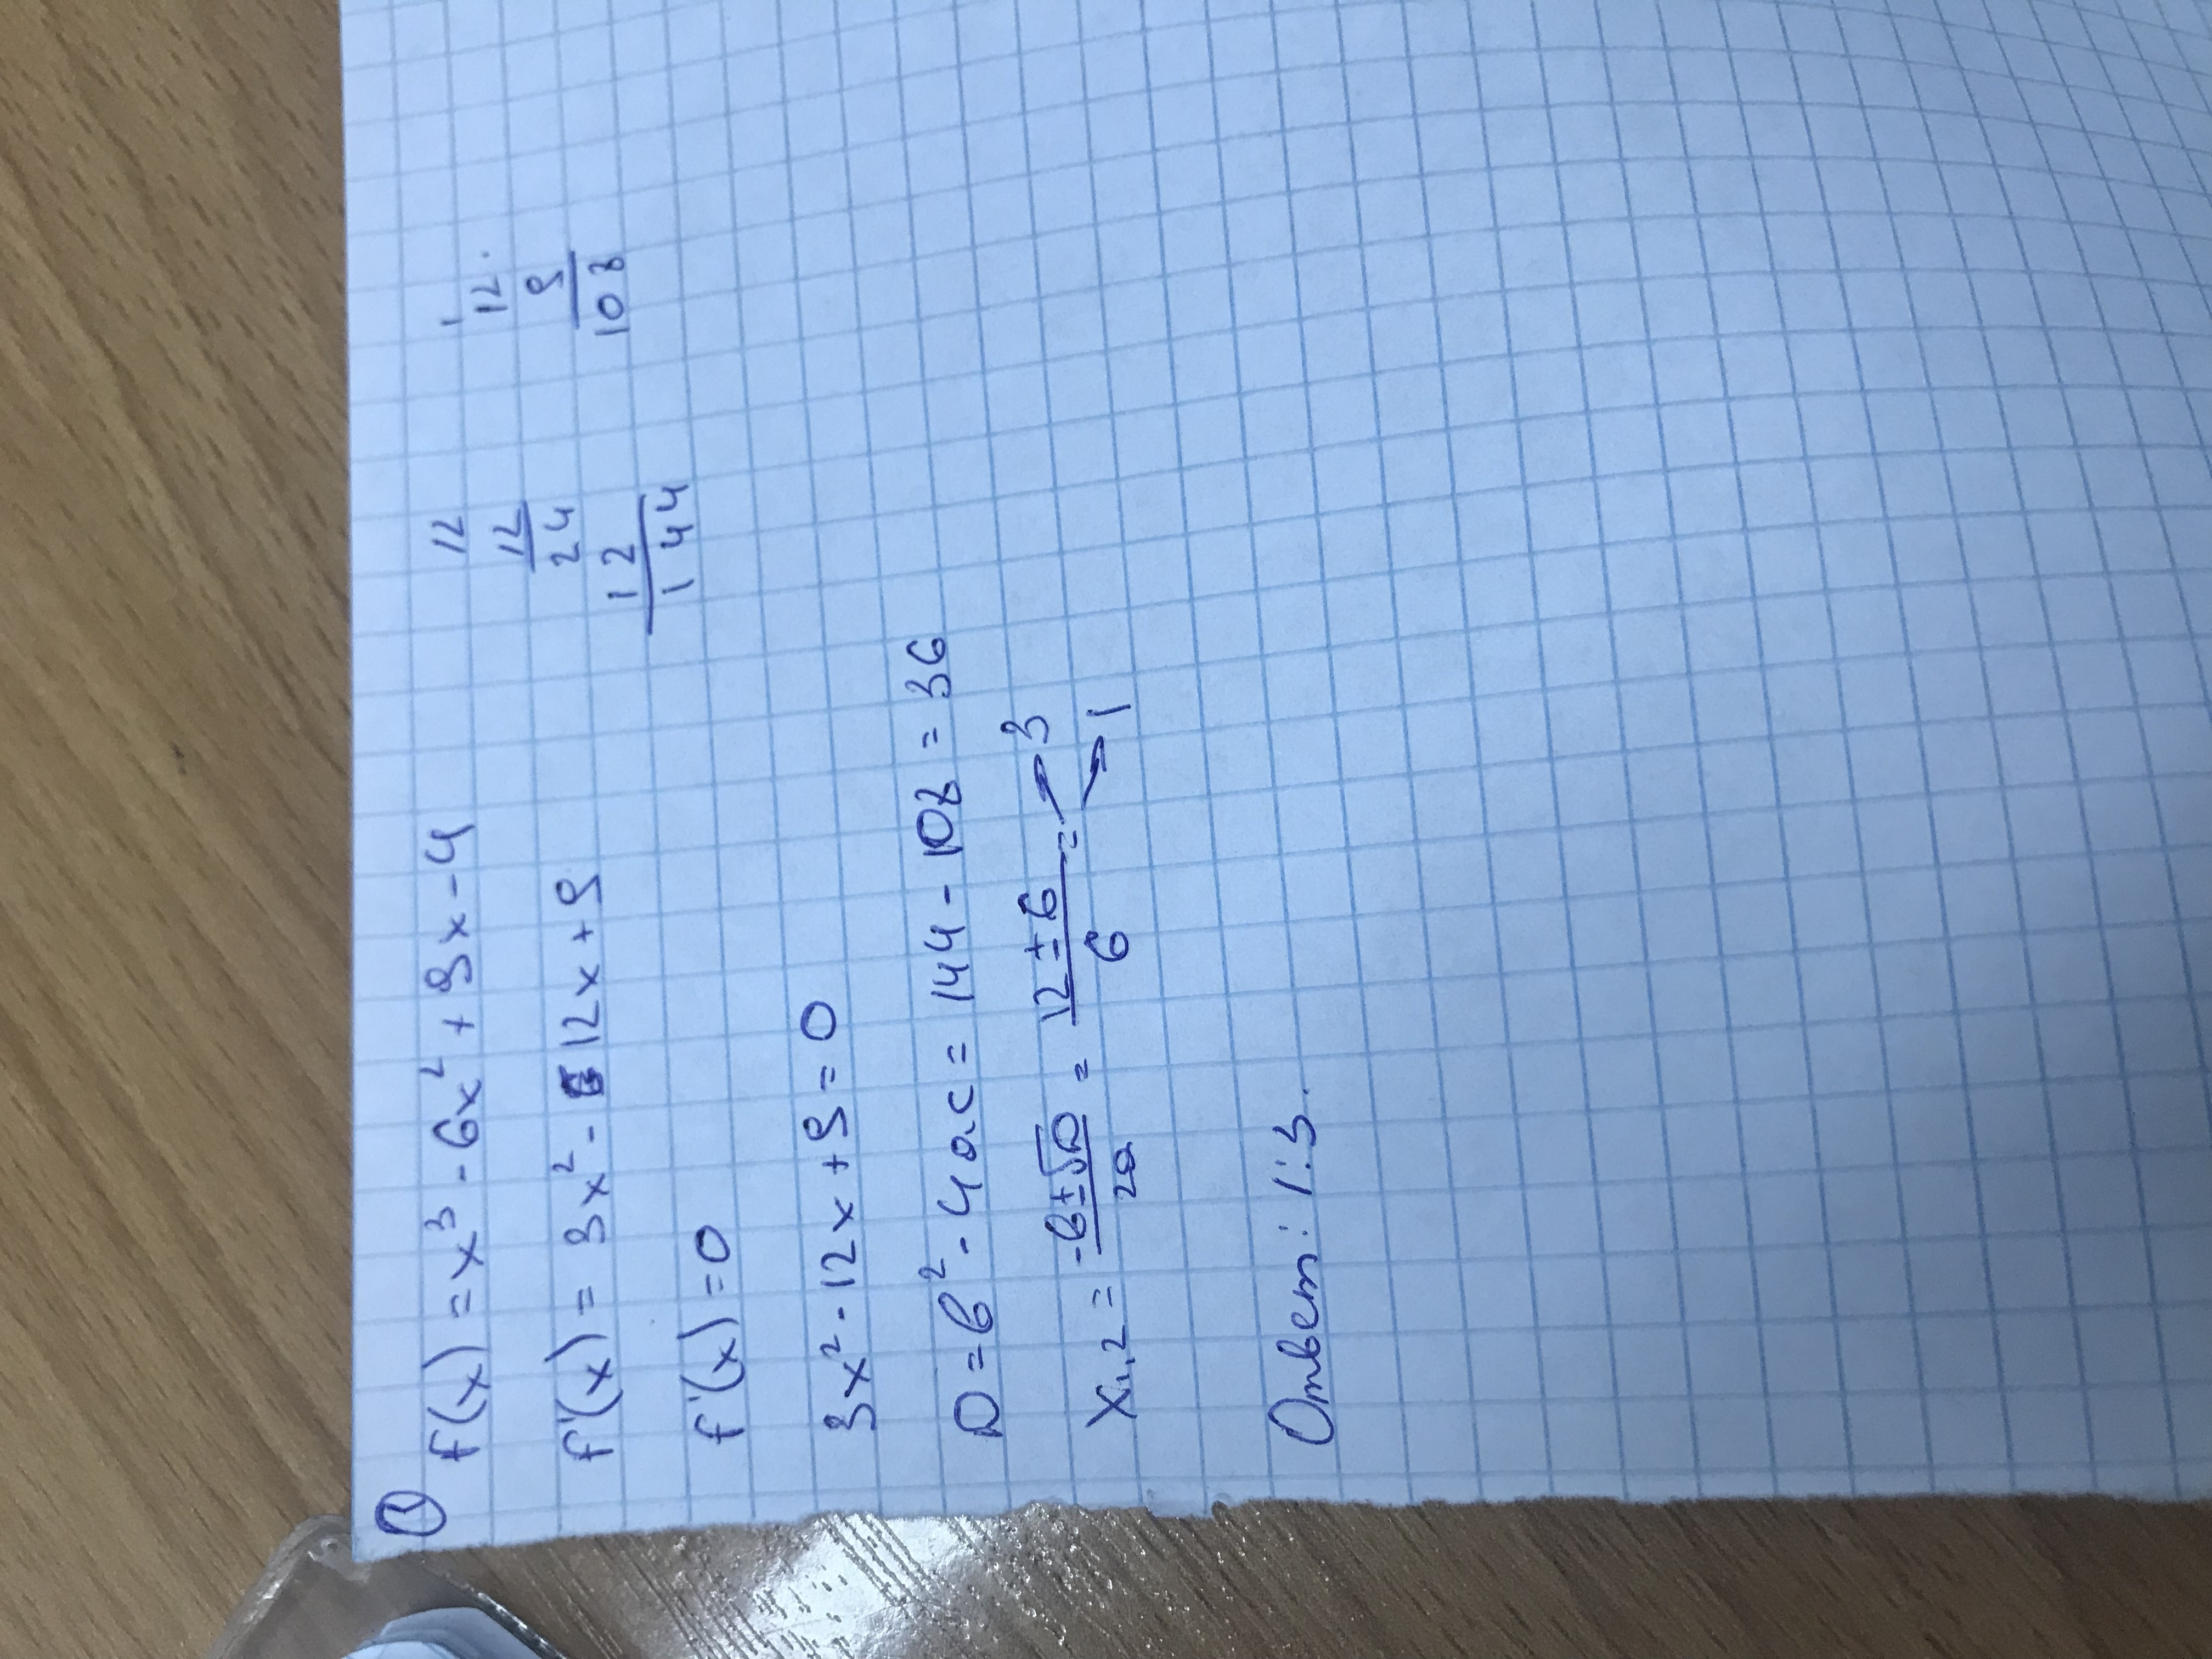 ①
f(x) = x³ - 6x² + 9x - 4
f'(x) = 3x² - 12x + 9
f'(x) = 0
3x² - 12x + 9 = 0
D = b² - 4ac = 144 - 108 = 36
x₁,₂ = (-b ± √D)/2a = (12 ± 6)/6 = 3
1
Ответ: 1; 3.
12
12
24
12
144
1
12
9
108